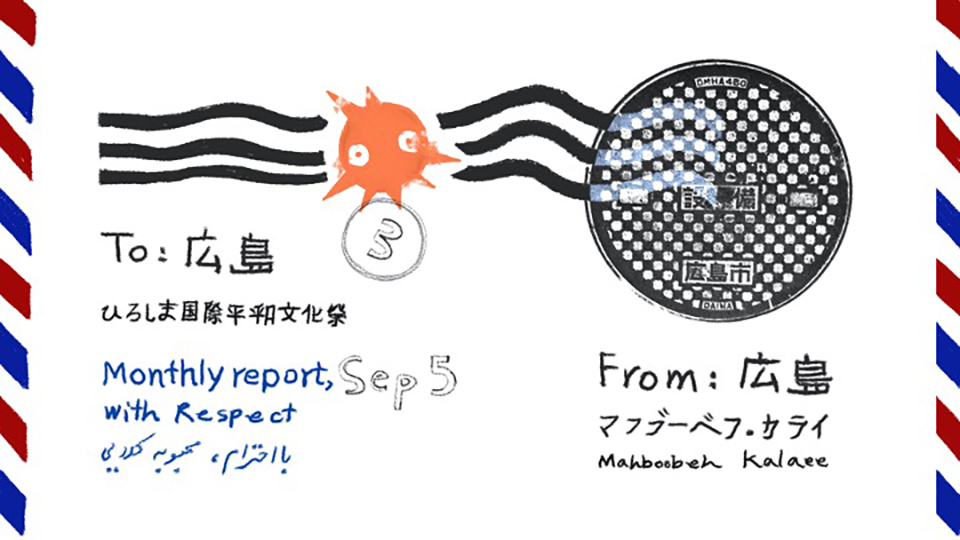 DMHA450
設 備
広島市
DAIWA
3
To: 広島
ひろしま国際平和文化祭
Monthly report, Sep 5
with Respect
بااحترام، محبوبه کلایی
From: 広島
マフブーベフ・カライ
Mahboobeh Kalaee